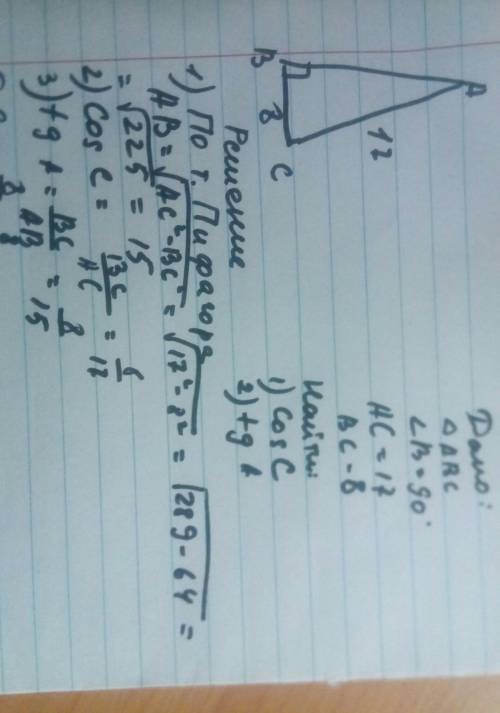 A
B
C
8
12
Дано:
△ ABC
∠B = 90°
AC = 17
BC - 8
Найти:
1) Cos C
2) tg A
Решение
1) По т. Пифагора
AB = √AC² - BC² = √17² - 8² = √289 - 64 =
= √225 = 15
2) Cos C = BC/AC = 8/17
3) tg A = BC/AB = 8/15